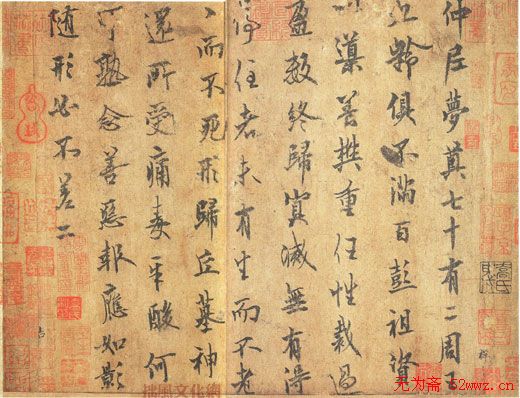 仲尼夢奠七十有二周王
九齡俱不滿百彭祖資
以導養樊重任性裁過
盈數終歸冥滅無有得
停住者未有生而不老
老而不死形歸丘墓神
還所受痛毒辛酸何
可熟念善惡報應如影
隨形必不差二
无为斋 52wwz.cn